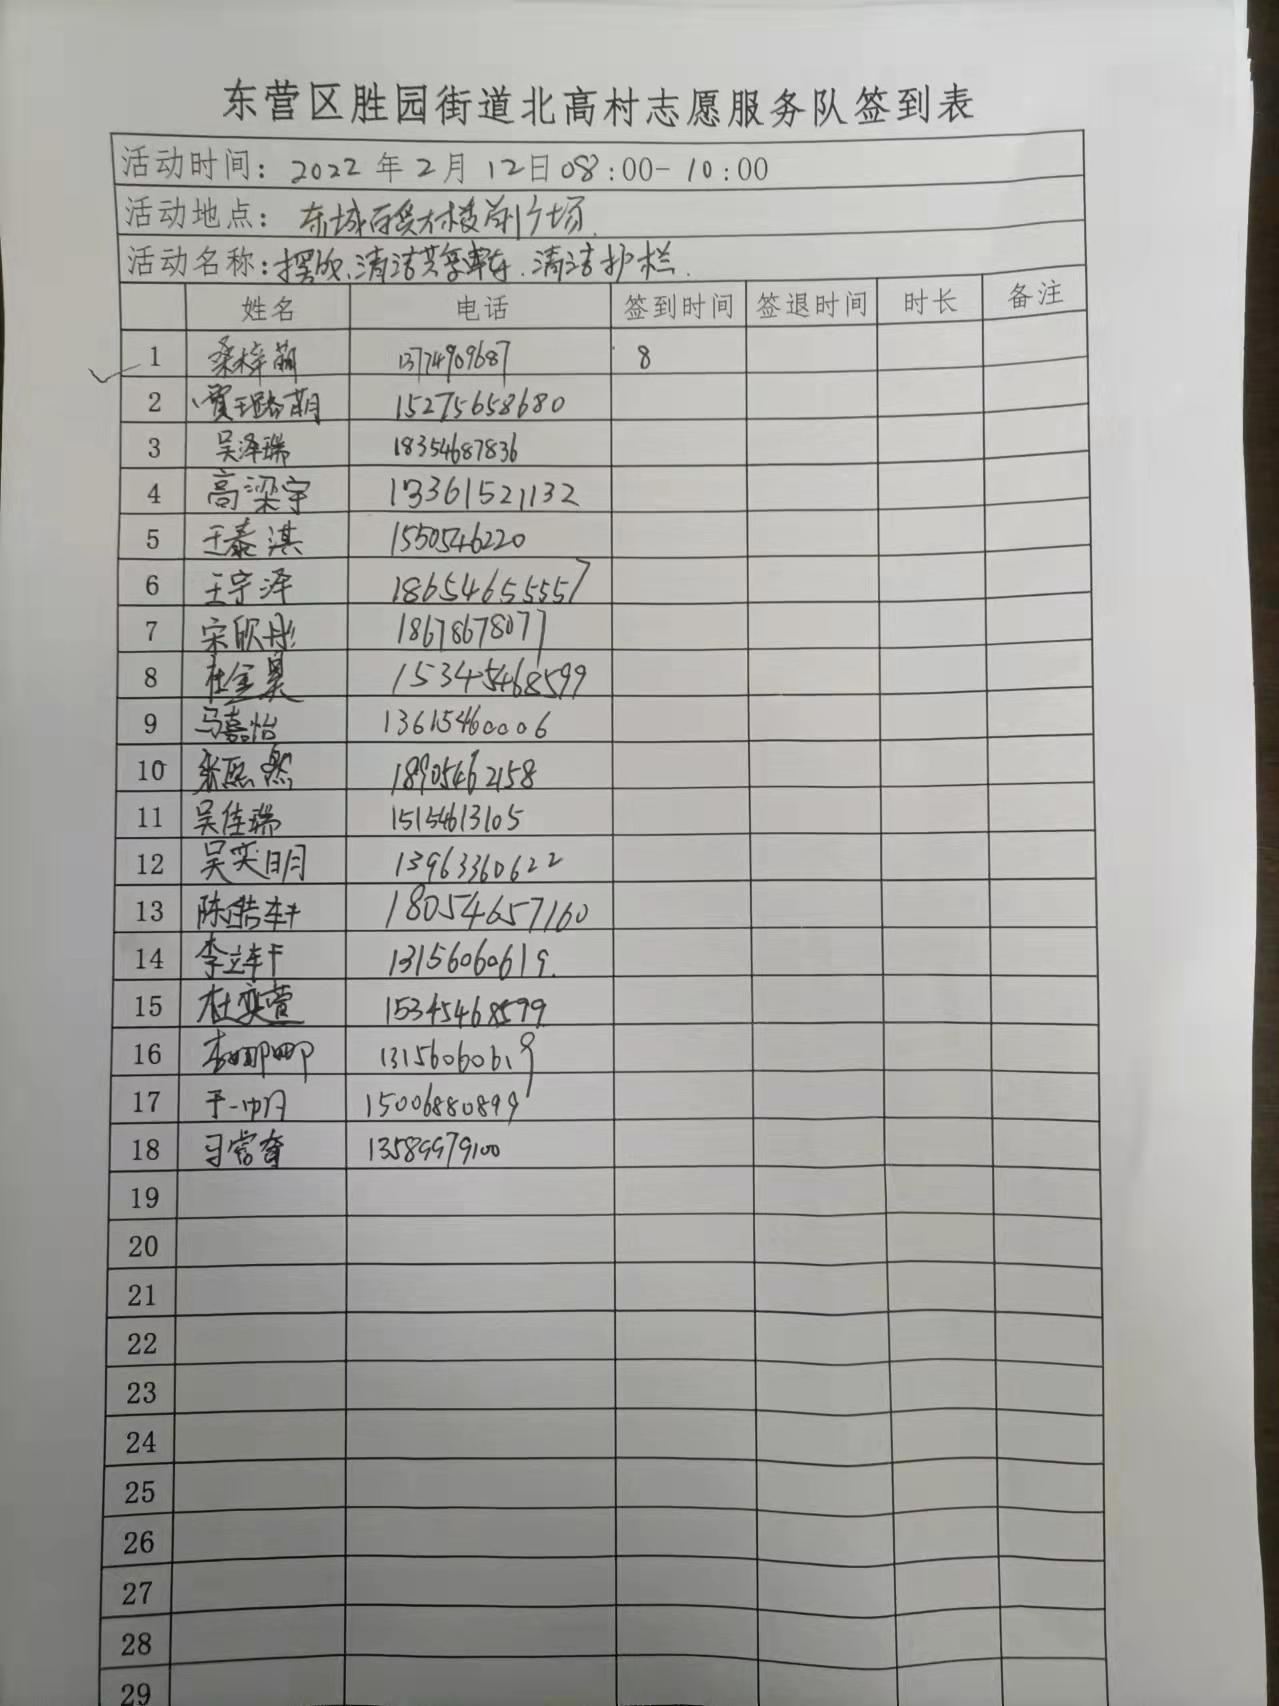 东营区胜园街道北高村志愿服务队签到表
活动时间: 2022 年 2 月 12日 08:00- 10:00
活动地点: 东城百货大楼前广场.
活动名称: 摆放、清洁共享单车、清洁护栏.
姓名 电话 签到时间 签退时间 时长 备注
1 桑梓萌 13774909687 8
2 贾璐萌 15275658680
3 吴泽瑞 18354687836
4 高梁宇 13361521132
5 王泰淇 1550546220
6 王宇泽 18654655557
7 宋欣彤 18678678077
8 杜金昊 15345468599
9 马嘉怡 13615460006
10 张熙然 18905462158
11 吴佳瑞 15154613105
12 吴奕明 13963360622
13 陈皓轩 18054657160
14 李立轩 13156060619.
15 杜奕萱 15345468599
16 李娜娜 13156060619
17 于一 15006880899
18 13589979100
19
20
21
22
23
24
25
26
27
28
29